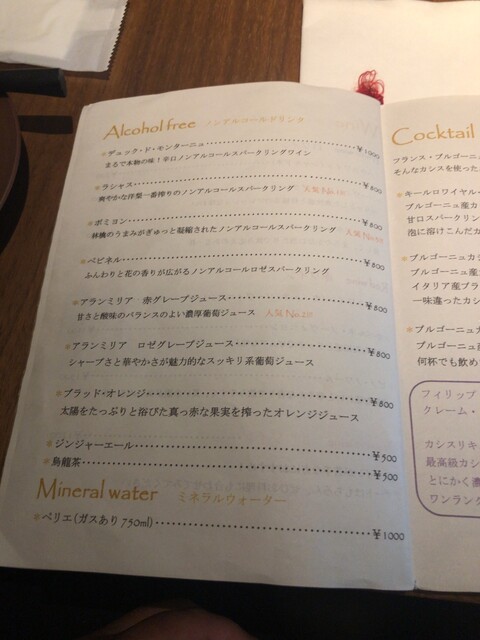 Alcohol free ノンアルコールドリンク
*デュック・ド・モンターニュ ¥1000
まるで本物の味!辛口ノンアルコールスパークリングワイン
*ラシャス ¥800
爽やかな洋梨一番搾りのノンアルコールスパークリング 人気No.1!!
*ボミヨン ¥800
林檎のうまみがぎゅっと凝縮されたノンアルコールスパークリング 人気No.3!!
*ペピネル ¥800
ふんわりと花の香りが広がるノンアルコールロゼスパークリング
*アランミリア 赤グレープジュース ¥800
甘さと酸味のバランスのよい濃厚葡萄ジュース 人気No.2!!
*アランミリア ロゼグレープジュース ¥800
シャープさと華やかさが魅力的なスッキリ系葡萄ジュース
*ブラッド・オレンジ ¥800
太陽をたっぷりと浴びた真っ赤な果実を搾ったオレンジジュース
*ジンジャーエール ¥500
*烏龍茶 ¥500
Mineral water ミネラルウォーター
*ペリエ(ガスあり 750ml) ¥1000
Cocktail
フランス・ブルゴーニュ
そんなカシスを使った
*キールロワイヤル・
ブルゴーニュ産カ
甘口スパークリン
泡に溶けこんだカ
*ブルゴーニュカシ
ブルゴーニュ産
イタリア産ブラ
一味違ったカシ
*ブルゴーニュカ
ブルゴーニュ産
何杯でも飲め
フィリップ
クレーム・
カシスリキ
最高級カシ
とにかく濃
ワンランク